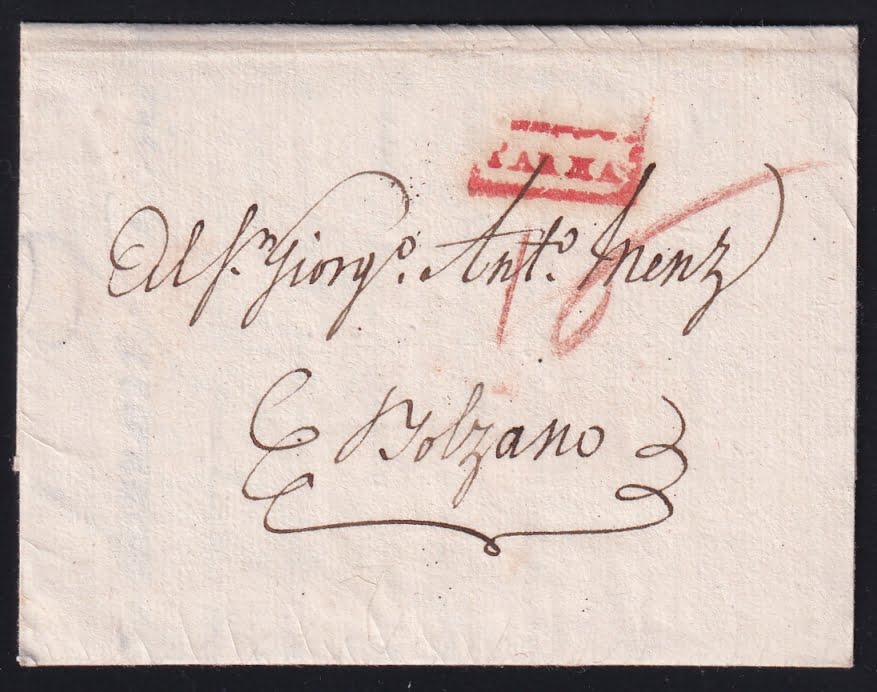 PARMA
Al Sr. Giorgo. Anto. Menz
16
Bolzano